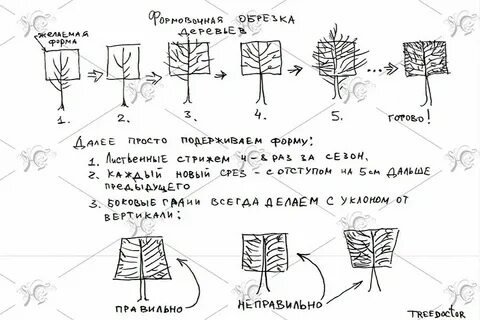 Формовочная обрезка
деревьев
желаемая
форма
1.
2.
3.
4.
5.
готово!
Далее просто подерживаем форму:
1. Лиственные стрижем 4-8 раз за сезон.
2. Каждый новый срез - с отступом на 5см дальше
предыдущего
3. Боковые грани всегда делаем с уклоном от
вертикали:
правильно
неправильно
TREEDOCTOR